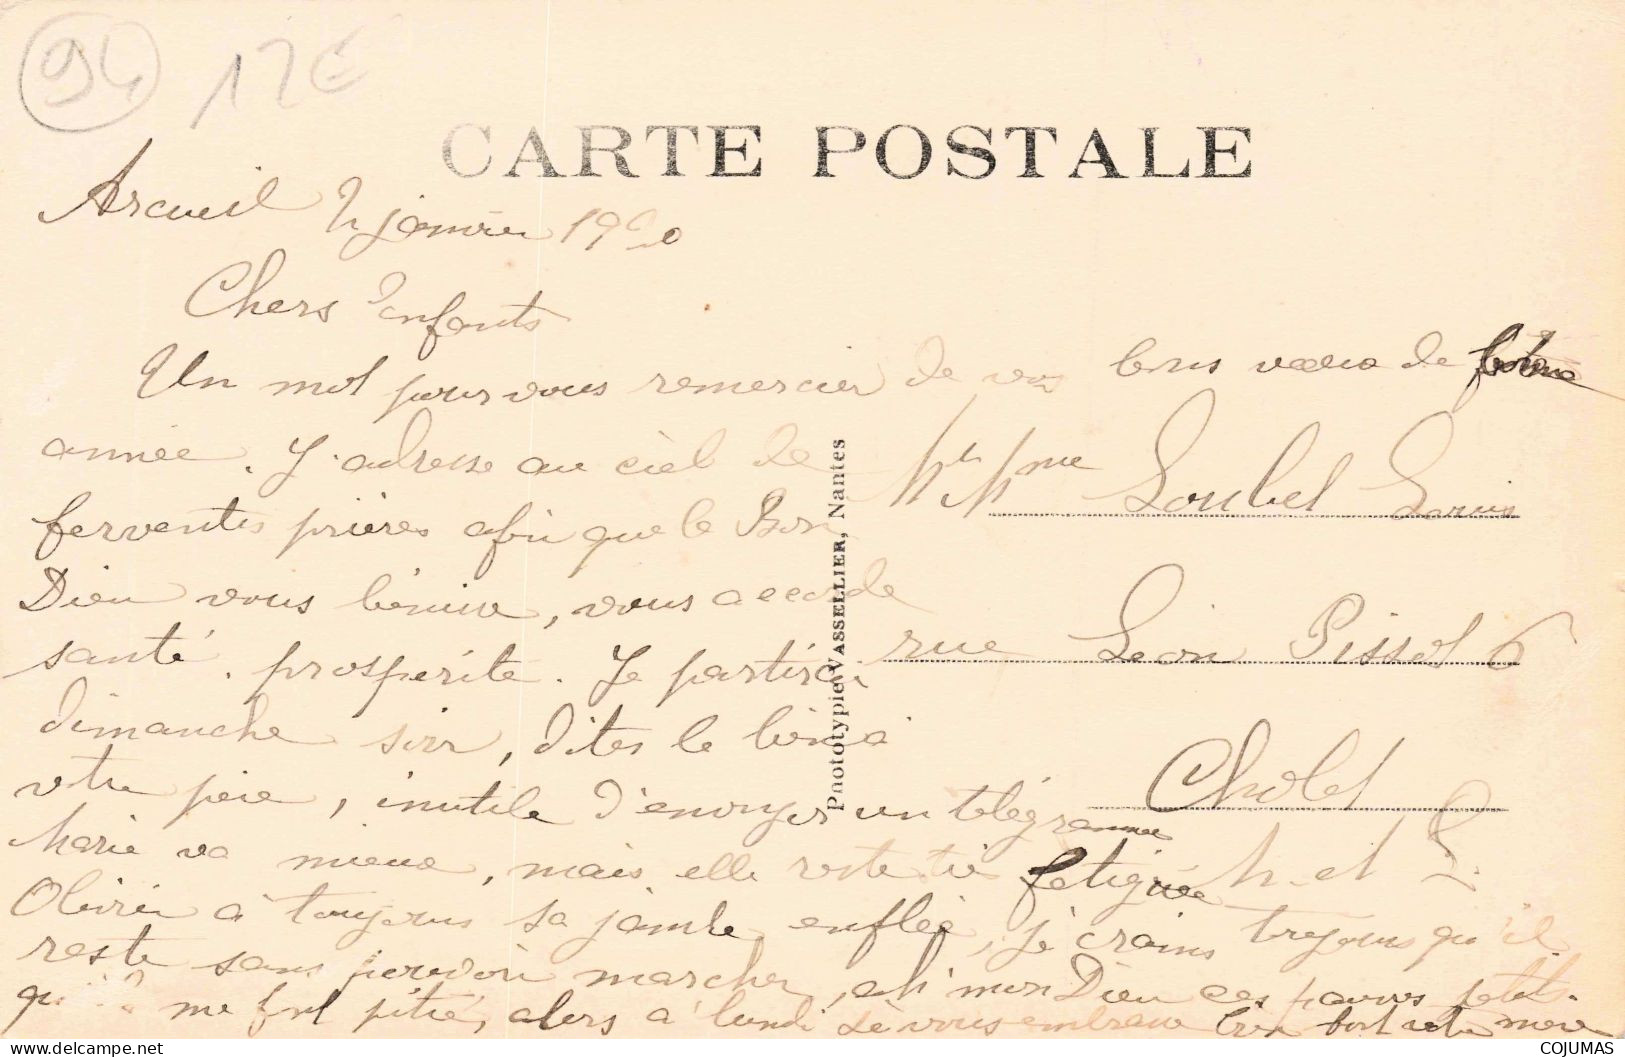 94 12€
CARTE POSTALE
Arcueil 2 janvier 1920
Chers Enfants
Un mot pour vous remercier de vos bons vœux de bonne
année. J'adresse au ciel de
ferventes prières afin que le Bon
Dieu vous bénisse, vous accorde
santé. prospérité. Je partirai
dimanche soir, dites le bien à
votre père, inutile d'envoyer un télégramme
Marie va mieux, mais elle reste très fatiguée
Olivier a toujours sa jambe enflée, je crains toujours qu'il
reste sans pouvoir marcher, ah mon Dieu ces pauvres petits
qu'il me font pitié, alors à lundi je vous embrasse bien fort votre mère
Phototypie VASSELLIER, Nantes
Mr Mme Loubel Louis
rue Léon Pissot 6
Cholet
M. et L.
COJUMAS